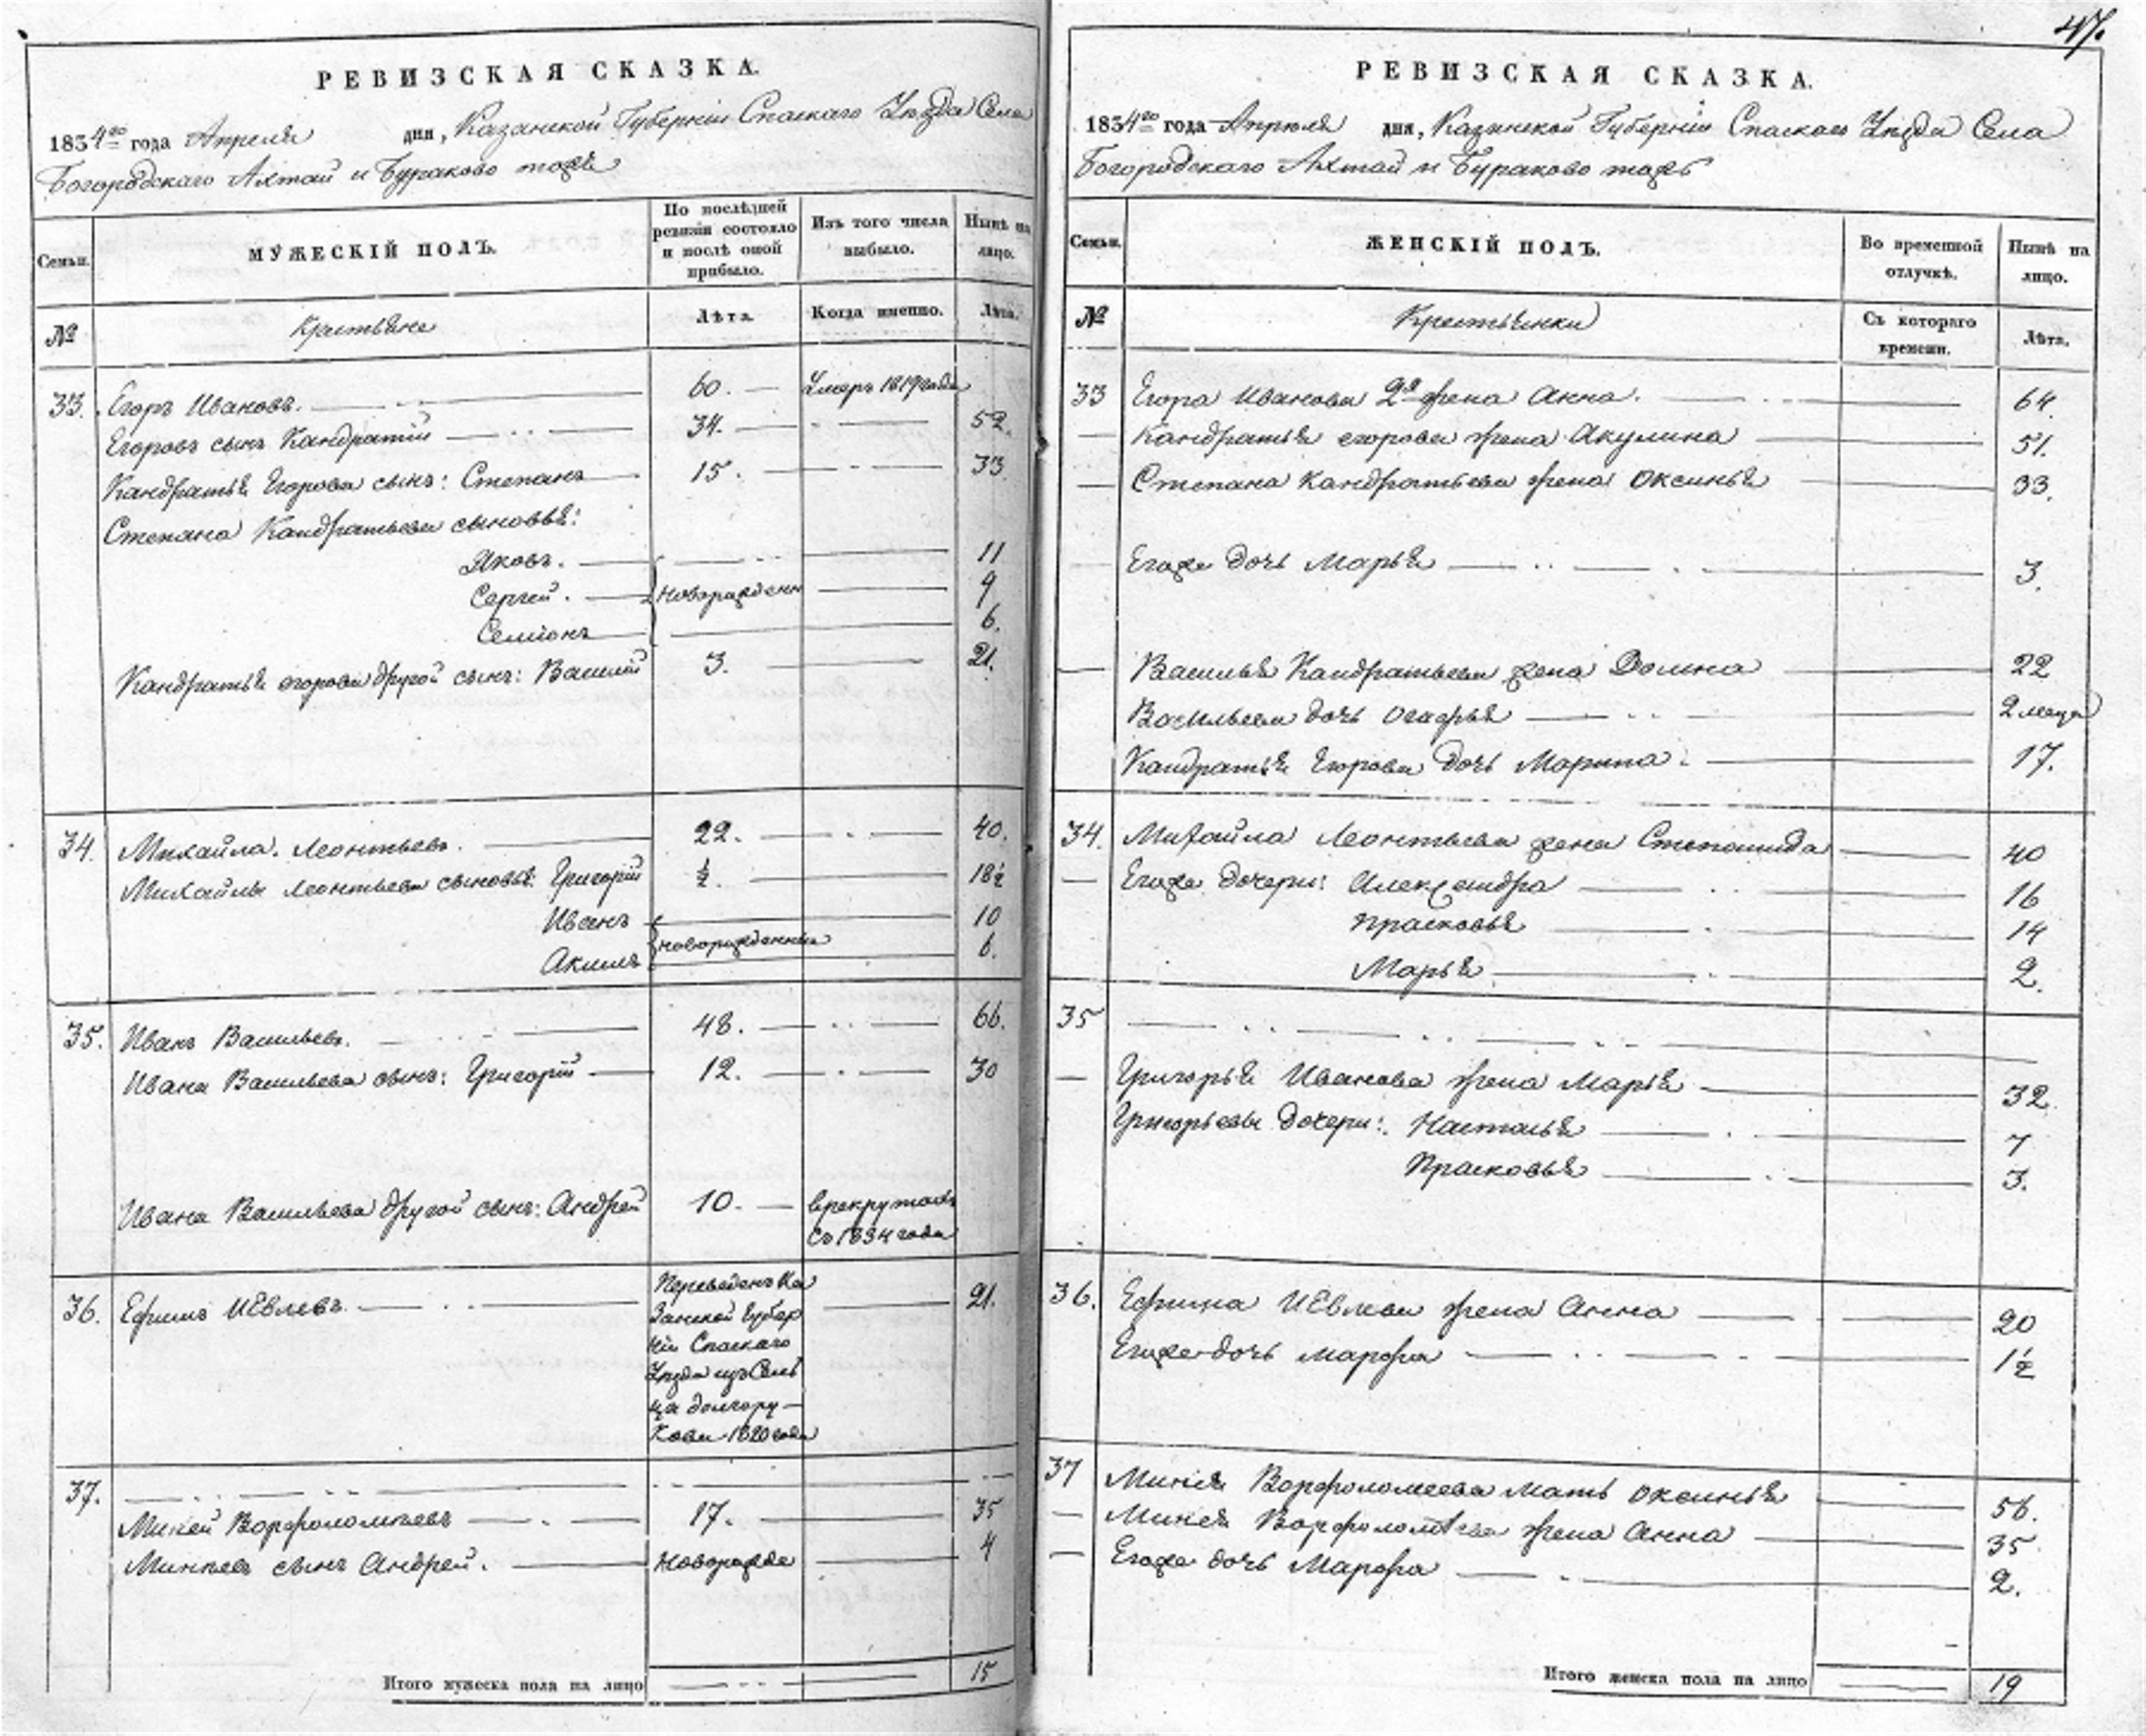 РЕВИЗСКАЯ СКАЗКА.
1834го года Апреля дня, Казанской Губернiи Спаскаго Уѣзда Села
Богородскаго Ахтай и Бураково тожъ
Семьи.
МУЖЕСКIЙ ПОЛЪ.
По послѣдней ревизiи состояло и послѣ оной прибыло.
Изъ того числа выбыло.
Нынѣ на лицо.
№
Крестьяне
Лѣта.
Когда именно.
Лѣта.
33. Егоръ Ивановъ. 60. Умеръ 1819 года
Егоровъ сынъ Кандратiй 34. 52.
Кандратья Егорова сынъ: Степанъ 15. 33
Степана Кандратьева сыновья:
Яковъ. 11
Сергей. новорожден 9
Семiонъ 6.
Кандратья егорова другой сынъ: Василiй 3. 21.
34. Михайла Леонтьевъ. 22. 40.
Михайлы Леонтьева сыновья: Григорiй ½. 18½
Иванъ 10
новорожденныя
Акимъ 6.
35. Иванъ Васильевъ. 48. 66.
Ивана Васильева сынъ: Григорiй 12. 30
Ивана Васильева другой сынъ: Андрей 10. врекрутахъ
съ 1834 года
36. Ефимъ Иевлевъ. Переведенъ Ка 21.
занской Губер
нiи Спаскаго
Уѣзда изъ Сель
ца долгору-
кова 1820 года
37.
Миней Ворфоломѣевъ 17. 35
Минѣевъ сынъ Андрей. Новорожде 4
Итого мужеска пола на лицо 15
47.
РЕВИЗСКАЯ СКАЗКА.
1834го года Апреля дня, Казанской Губернiи Спаскаго Уѣзда Села
Богородскаго Ахтай и Бураково тожъ
Семьи.
ЖЕНСКIЙ ПОЛЪ.
Во временной отлучкѣ.
Нынѣ на лицо.
№
Крестьянки
Съ котораго времени.
Лѣта.
33 Егора Иванова 2я жена Анна. 64.
Кандратья егорова жена Акулина 51.
Степана Кандратьева жена Оксинья 33.
Егоже дочь Марья 3.
Василья Кандратьева жена Домна 22
Васильева дочь Огафья 2 меца
Кандратья Егорова дочь Марина. 17.
34. Михайла Леонтьева жена Степанида 40
Егоже дочери: Александра 16
Прасковья 14
Марья 2.
35
Григорья Иванова жена Марья 32.
Григорьевы дочери: Насталья 7
Прасковья 3.
36. Ефима Иевлева жена Анна 20
Егоже дочь Марфа 1½
37 Минея Ворфоломеева мать Оксинья 56.
Минея Ворфоломѣева жена Анна 35
Егоже дочь Марфа 2.
Итого женска пола на лицо 19